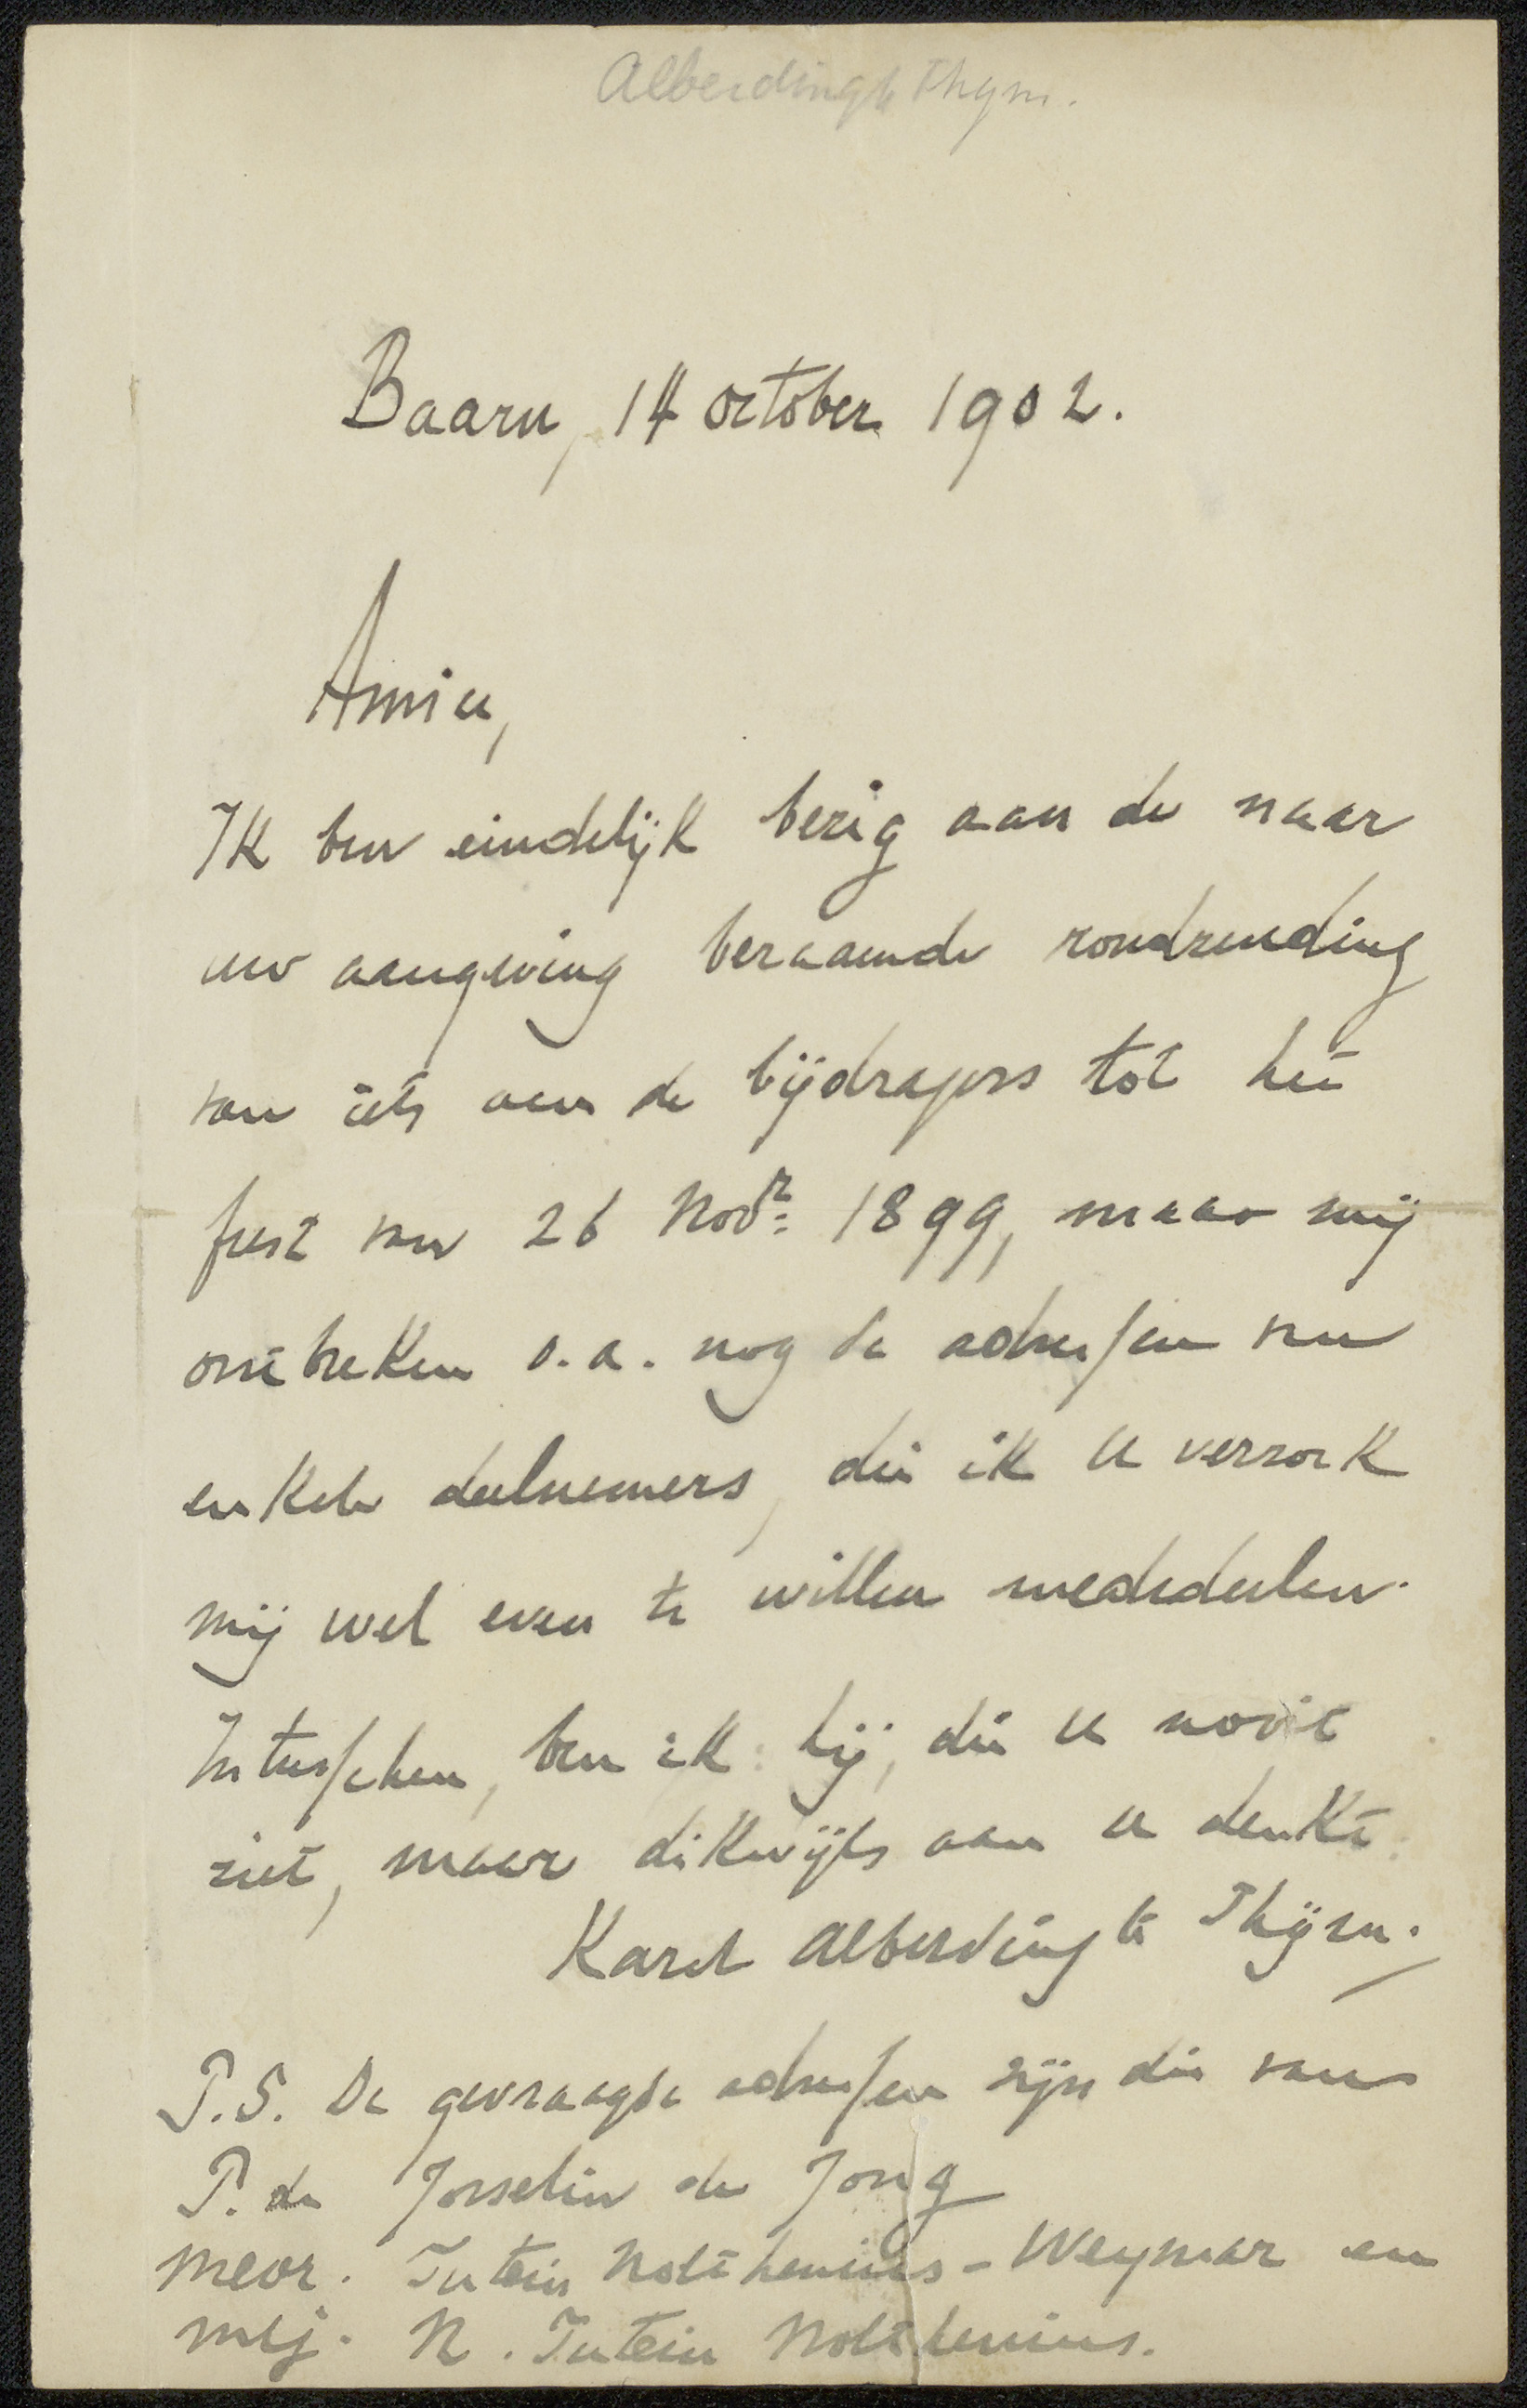 Alberdingk Thym.
Baarn, 14 october 1902.
Amice,
Ik ben eindelijk bezig aan de naar
uw aangeving beraamde rondzending
van iets aan de bijdragers tot het
feest van 26 Novr. 1899, maar mij
ontbreken o.a. nog de adressen van
enkele deelnemers, die ik U verzoek
mij wel even te willen mededeelen.
Intusschen, ben ik hij, die U nooit
ziet, maar dikwijls aan U denkt.
Karel Alberdingk Thijm.
P.S. De gevraagde adressen zijn die van
P. de Josselin de Jong
Mevr. Tutein Nolthenius-Weymar en
Mej. N. Tutein Nolthenius.